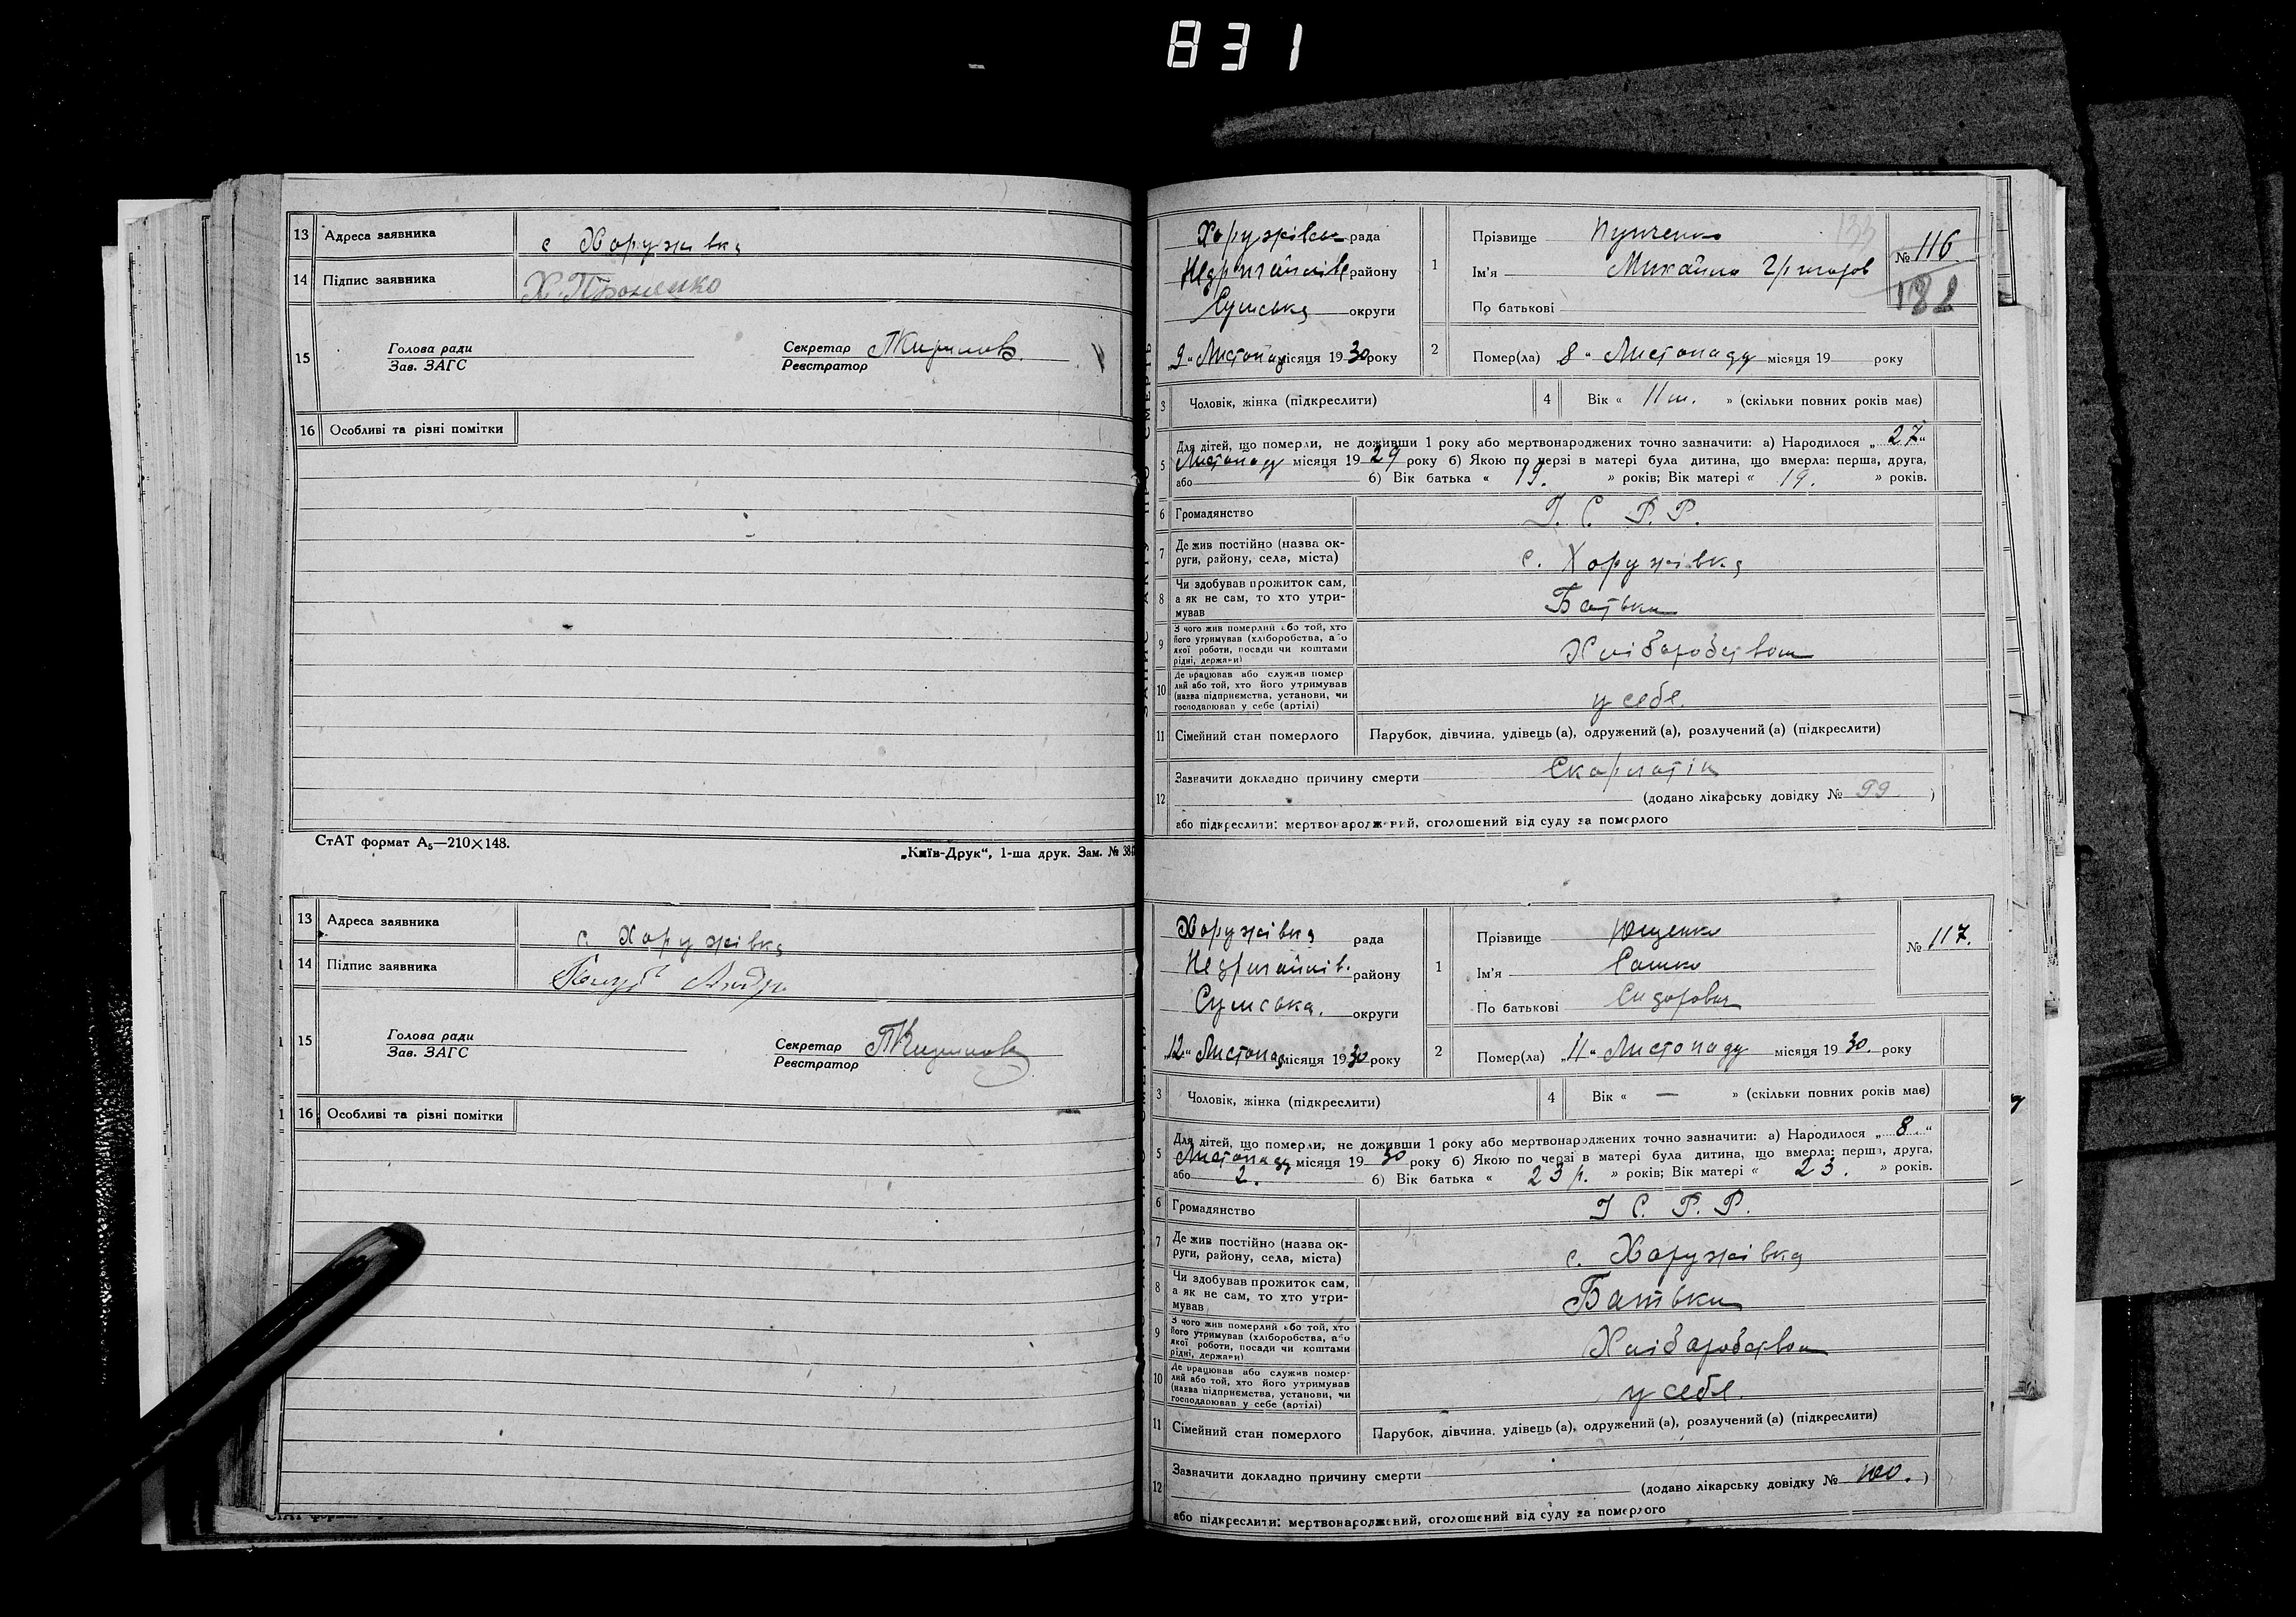 831
13 Адреса заявника с Хоружівка
14 Підпис заявника Х. Проненко
15 Голова ради
Зав. ЗАГС
Секретар
Реєстратор
16 Особливі та різні помітки
СтАТ формат А₅—210×148.
„Київ-Друк“, 1-ша друк. Зам. № 38
13 Адреса заявника с. Хоружівка
14 Підпис заявника
15 Голова ради
Зав. ЗАГС
Секретар
Реєстратор
16 Особливі та різні помітки
Хоружівськ рада
Недригайлів району
Сумська округи
„9“ Листопаду місяця 1930 року
133
№ 116.
132
1 Прізвище
Ім'я Михайло Григоров
По батькові
2 Помер(ла) 8 “ Листопаду місяця 19 року
3 Чоловік, жінка (підкреслити)
4 Вік « 11 м. » (скільки повних років має)
5 Для дітей, що померли, не доживши 1 року або мертвонароджених точно зазначити: а) Народилося „ 27 “
Листопаду місяця 19 29 року б) Якою по черзі в матері була дитина, що вмерла: перша, друга,
або б) Вік батька « 19. » років; Вік матері « 19. » років.
6 Громадянство У. С. Р. Р.
7 Де жив постійно (назва округи, району, села, міста) с. Хоружівка
8 Чи здобував прожиток сам, а як не сам, то хто утримував Батьки
9 З чого жив померлий або той, хто його утримував (хліборобства, або якої роботи, посади чи коштами рідні, держави) Хліборобством
10 Де працював або служив померлий або той, хто його утримував (назва підприємства, установи, чи господарював у себе (артілі) у себе.
11 Сімейний стан померлого Парубок, дівчина, удівець (а), одружений (а), розлучений (а) (підкреслити)
12 Зазначити докладно причину смерти Скарлатін
(додано лікарську довідку № 99 )
або підкреслити: мертвонароджений, оголошений від суду за померлого
Хоружівка рада
Недригайлів. району
Сумська. округи
„12“ Листопад місяця 1930 року
№ 117.
1 Прізвище Ющенко
Ім'я Сашко
По батькові Сидорович
2 Помер(ла) „11“ Листопаду місяця 19 30. року
3 Чоловік, жінка (підкреслити)
4 Вік « — » (скільки повних років має)
5 Для дітей, що померли, не доживши 1 року або мертвонароджених точно зазначити: а) Народилося „ 8 “
Листопаду місяця 19 30 року б) Якою по черзі в матері була дитина, що вмерла: перша, друга,
або 2. б) Вік батька « 23 р. » років; Вік матері « 23. » років.
6 Громадянство У С. Р. Р.
7 Де жив постійно (назва округи, району, села, міста) с. Хоружівка
8 Чи здобував прожиток сам, а як не сам, то хто утримував Батьки
9 З чого жив померлий або той, хто його утримував (хліборобства, або якої роботи, посади чи коштами рідні, держави) Хліборобством
10 Де працював або служив померлий або той, хто його утримував (назва підприємства, установи, чи господарював у себе (артілі) у себе.
11 Сімейний стан померлого Парубок, дівчина, удівець (а), одружений (а), розлучений (а) (підкреслити)
12 Зазначити докладно причину смерти
(додано лікарську довідку № 100. )
або підкреслити: мертвонароджений, оголошений від суду за померлого